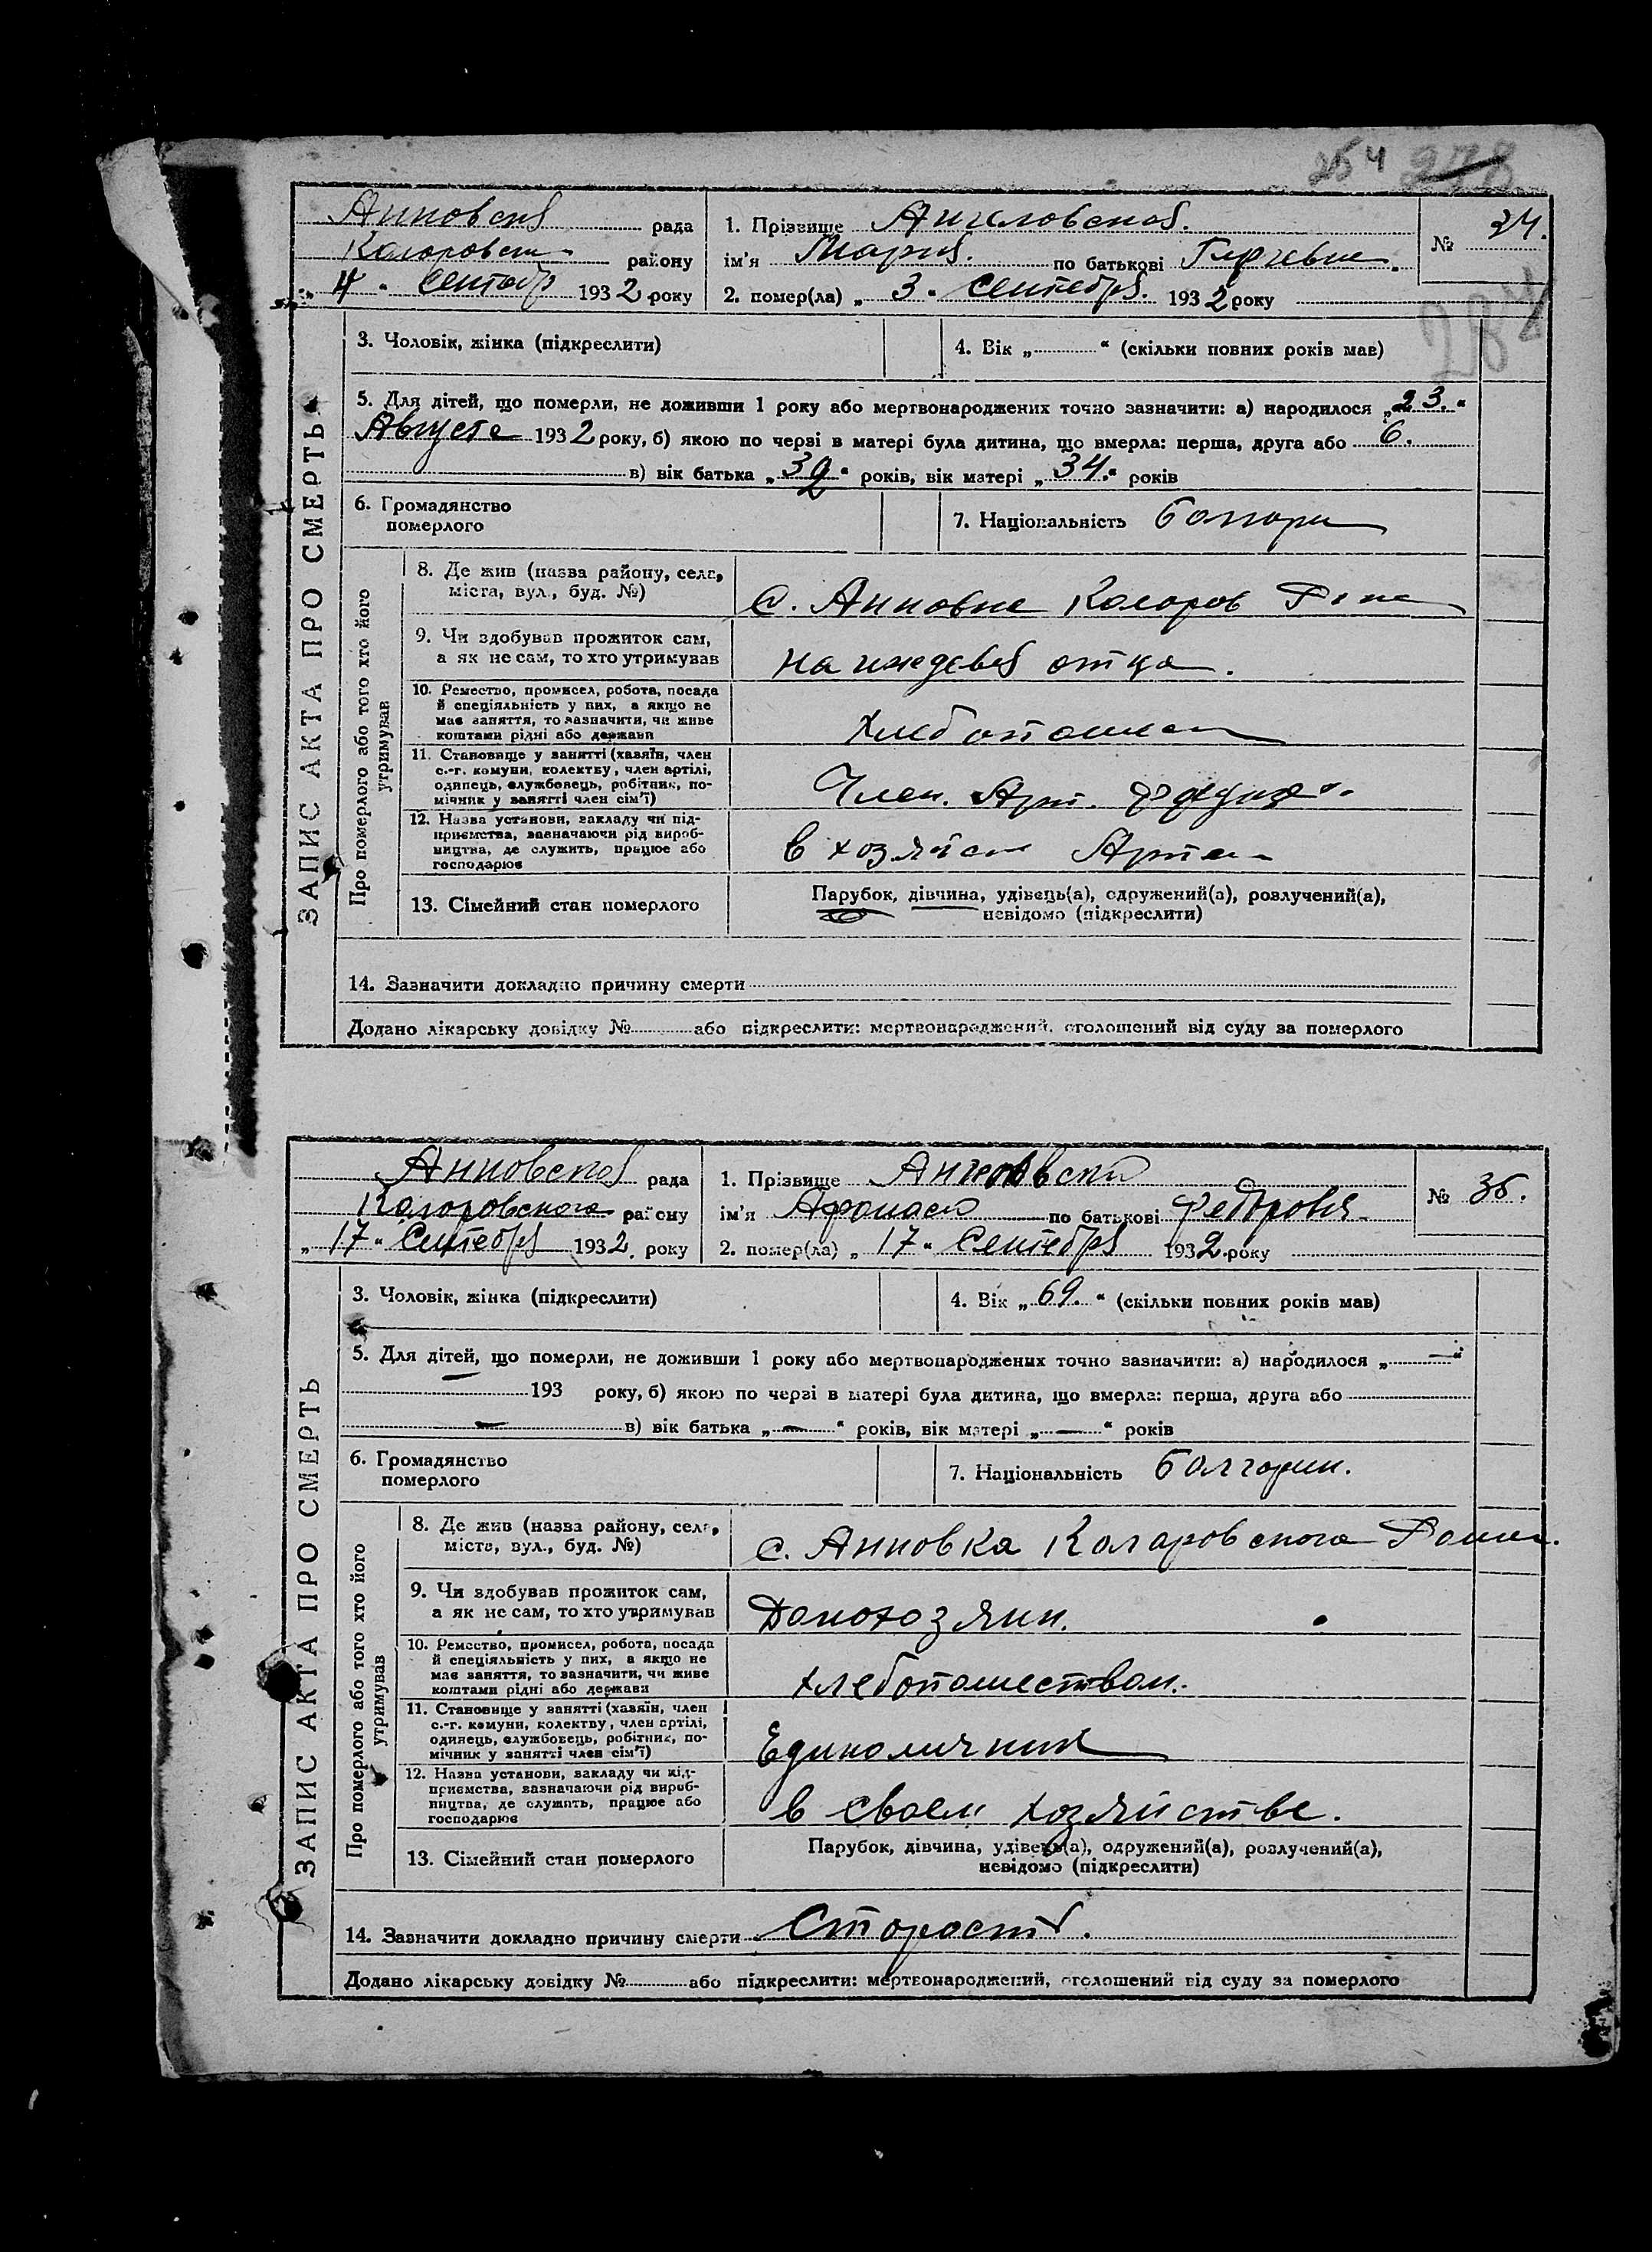 254 278
Анновской рада
Коларовск району
„4" Сентебр 1932 року
1. Прізвище Ангиловской.
ім'я Мария. по батькові
2. помер(ла) „3" Сентебря. 1932 року
№ 34.
287
ЗАПИС АКТА ПРО СМЕРТЬ
3. Чоловік, жінка (підкреслити)
4. Вік „ " (скільки повних років мав)
5. Для дітей, що померли, не доживши 1 року або мертвонароджених точно зазначити: а) народилося „23."
Августа 1932 року, б) якою по черзі в матері була дитина, що вмерла: перша, друга або 6.
в) вік батька „32" років, вік матері „34." років
6. Громадянство
померлого
7. Національність
Про померлого або того хто його
утримував
8. Де жив (назва району, села,
міста, вул., буд. №)
с. Анновка Коларов
9. Чи здобував прожиток сам,
а як не сам, то хто утримував
на иждевей отца.
10. Ремество, промисел, робота, посада
й спеціяльність у них, а якщо не
має заняття, то зазначити, чи живе
коштами рідні або держави
11. Становище у занятті (хазяїн, член
с.-г. комуни, колективу, член артілі,
одинець, службовець, робітник, по-
мічник у занятті член сім'ї)
Член. Арт.
12. Назва установи, закладу чи під-
приємства, зазначаючи рід вироб-
ництва, де служить, працює або
господарює
в хозяйств Артел
13. Сімейний стан померлого
Парубок, дівчина, удівець(а), одружений(а), розлучений(а),
невідомо (підкреслити)
14. Зазначити докладно причину смерти
Додано лікарську довідку № або підкреслити: мертвонароджений, оголошений від суду за померлого
Анновской рада
Коларовского району
„17" Сентебря 1932 року
1. Прізвище Ангеловский
ім'я Афонасий по батькові Федоровя
2. помер(ла) „17" Сентебря 1932 року
№ 35.
ЗАПИС АКТА ПРО СМЕРТЬ
3. Чоловік, жінка (підкреслити)
4. Вік „69." (скільки повних років мав)
5. Для дітей, що померли, не доживши 1 року або мертвонароджених точно зазначити: а) народилося „—"
193 року, б) якою по черзі в матері була дитина, що вмерла: перша, друга або
— в) вік батька „—" років, вік матері „—" років
6. Громадянство
померлого
7. Національність болгорин.
Про померлого або того хто його
утримував
8. Де жив (назва району, села,
міста, вул., буд. №)
с. Анновка Коларовского
9. Чи здобував прожиток сам,
а як не сам, то хто утримував
Домохозяин.
10. Ремество, промисел, робота, посада
й спеціяльність у них, а якщо не
має заняття, то зазначити, чи живе
коштами рідні або держави
хлебопошеством.
11. Становище у занятті (хазяїн, член
с.-г. комуни, колективу, член артілі,
одинець, службовець, робітник, по-
мічник у занятті член сім'ї)
Единоличник
12. Назва установи, закладу чи під-
приємства, зазначаючи рід вироб-
ництва, де служить, працює або
господарює
в своем хозяйстве.
13. Сімейний стан померлого
Парубок, дівчина, удівець(а), одружений(а), розлучений(а),
невідомо (підкреслити)
14. Зазначити докладно причину смерти Старость.
Додано лікарську довідку № або підкреслити: мертвонароджений, оголошений від суду за померлого